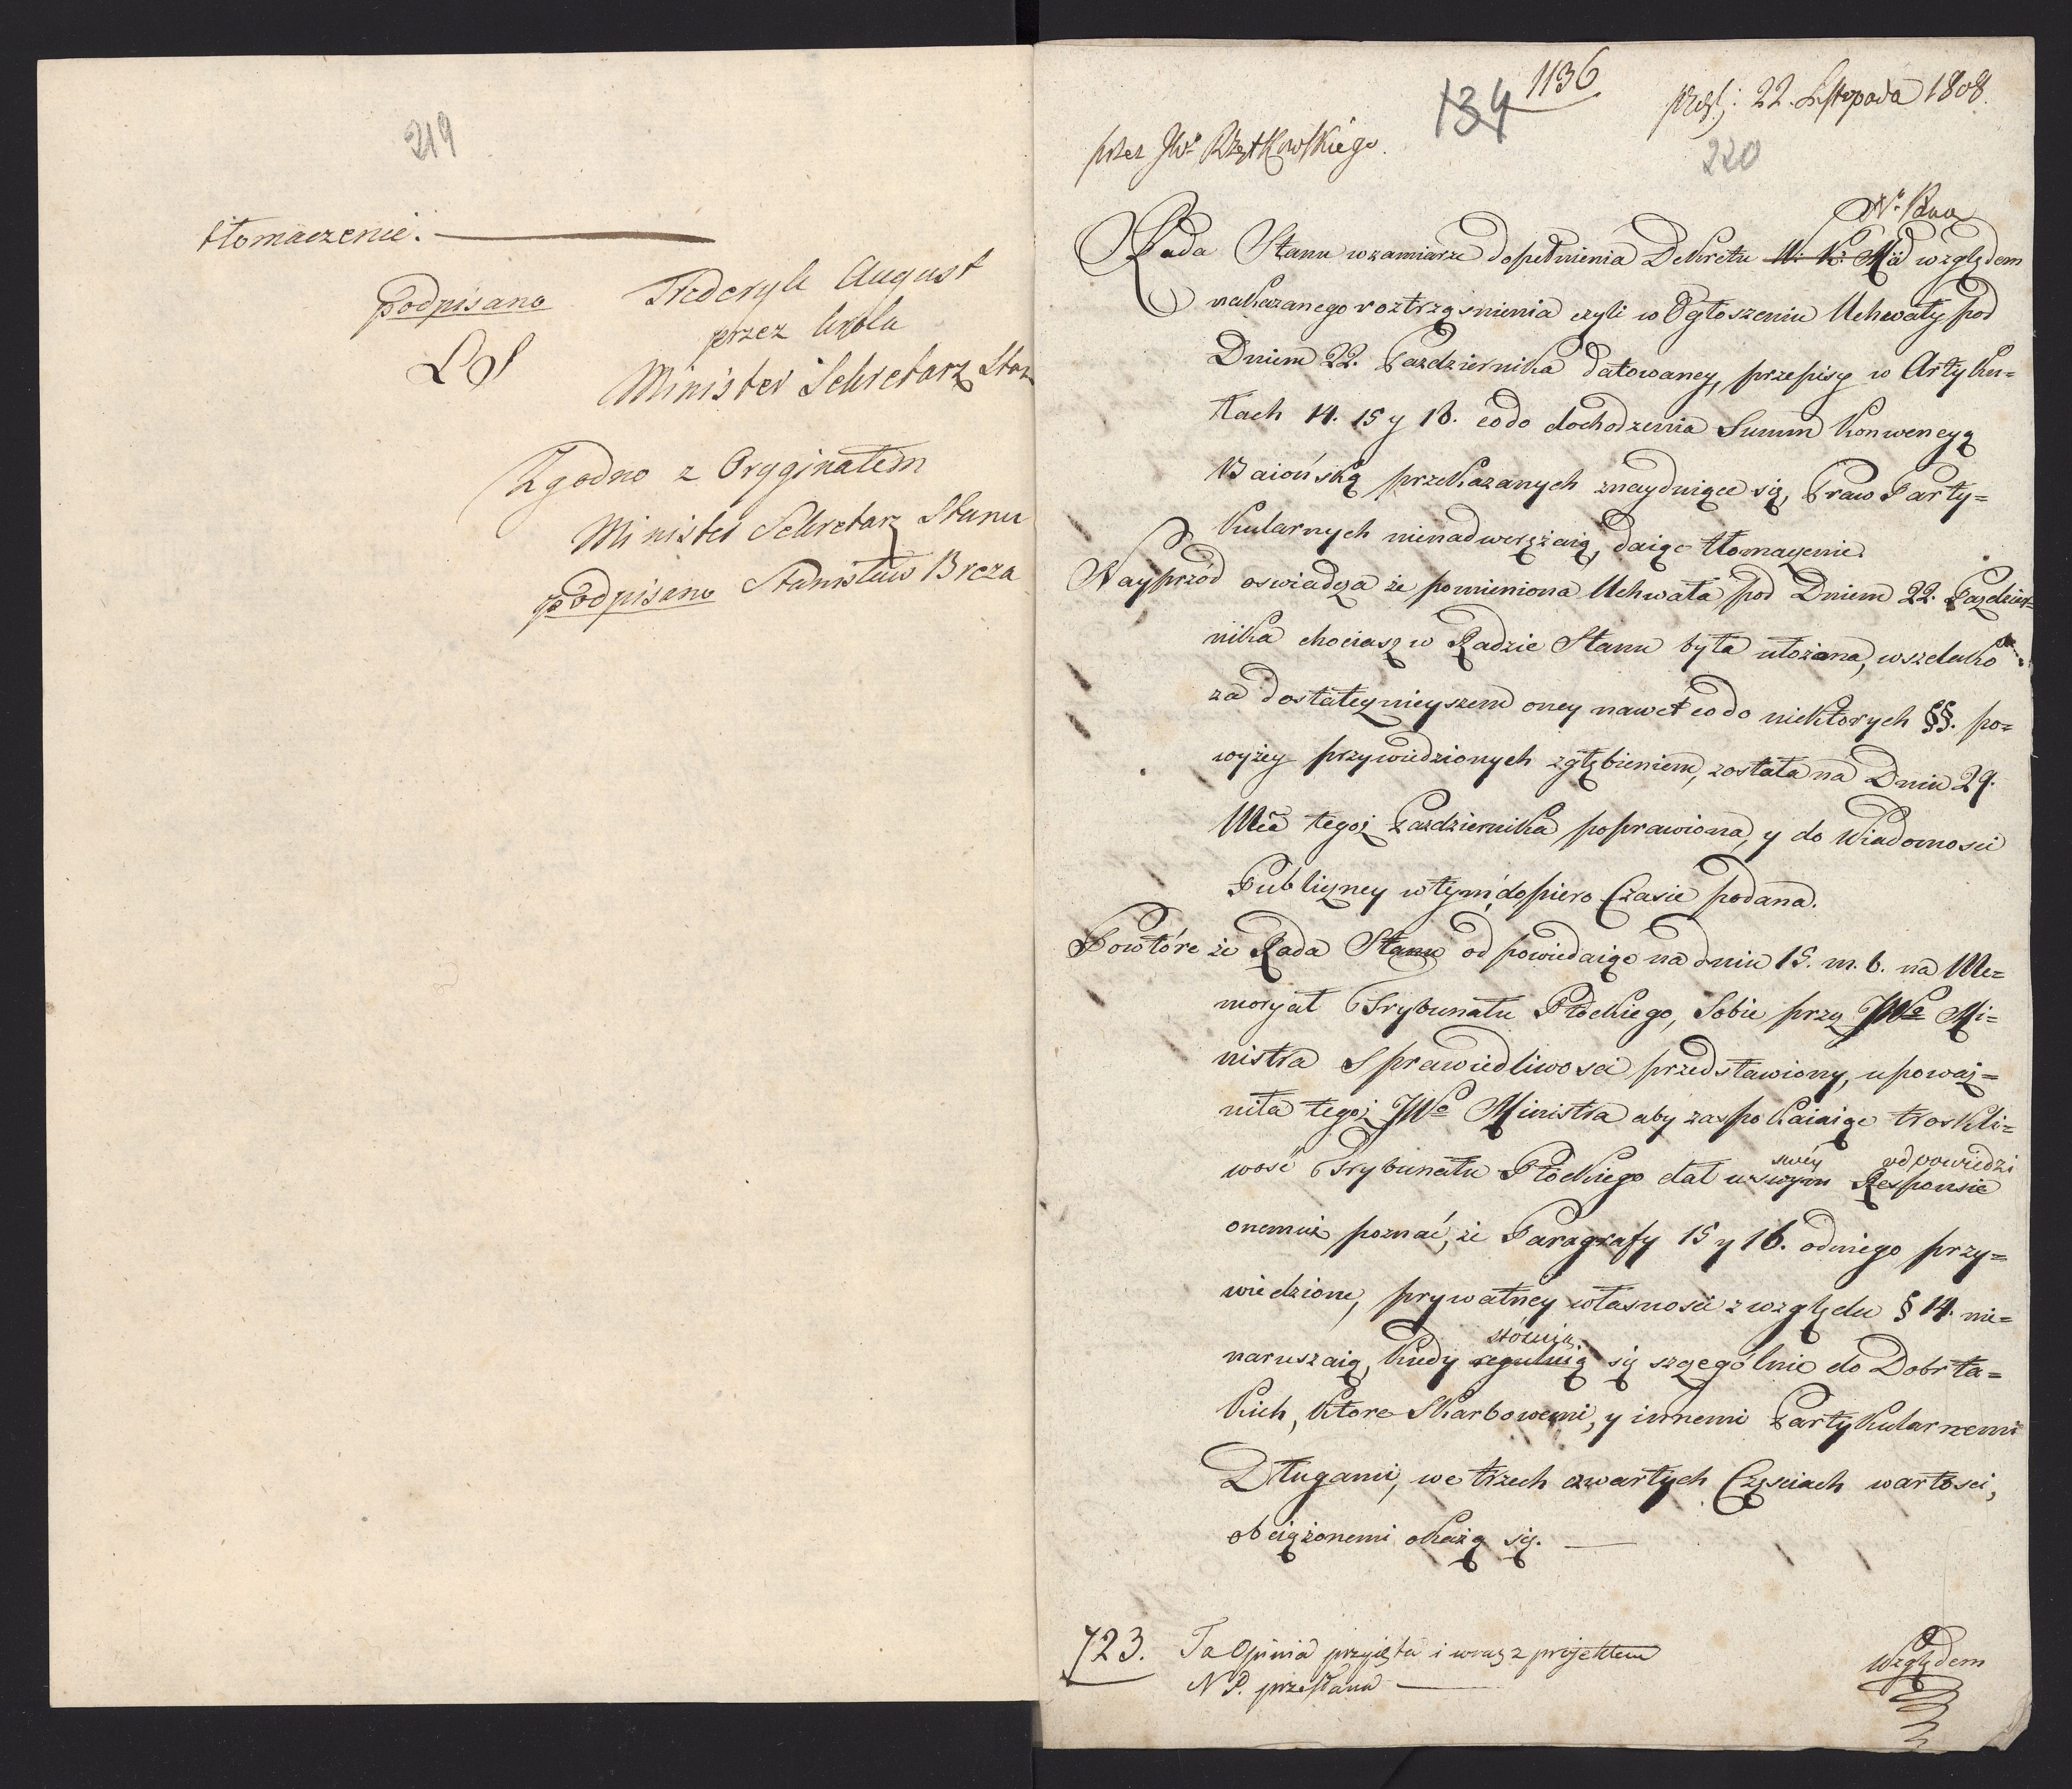 219
tłomaczenie.
podpisano Frederyk August
przez Króla
LS
Minister Sekretarz Stan
Zgodno z Orygginałem
Minister Sekretarz Stanu
podpisano Stanisław Breza
1136
134
przeł: 22. Listopada 1808.
przez JW Rzętkowskiego.
220
Nº. Pana
Rada Stanu w zamiarze dopełnienia Dekretu W. K. Mci względem
nakazanego roztrząsnienia czyli w Ogłoszeniu Uchwały pod
Dniem 22. Pazdziernika datowaney, przepisy w Artyku=
łach 14. 15 y 16. co do dochodzenia Summ Konwencyą
Baiońską przekazanych znayduiące się, Praw Party=
kularnych nienadwerężaią, daiąc tłomaczenie
Nayprzód oswiadcza że pomieniona Uchwała pod Dniem 22. Pazdzier=
nika chociasz w Radzie Stanu była ułożona, wszelako
za dostatecznieyszem oney nawet co do niektorych §§. po=
wyżey przywiedzionych zgłębieniem, została na Dniu 29.
Mca tegoż Pazdziernika poprawiona, y do Wiadomosci
Publiczney w tym dopiero Czasie podana.
Powtóre że Rada Stanu odpowiedaiąc na dniu 15. m. b. na Me=
moryał Trybunału Płockiego, Sobie przez JWo Mi=
nistra Sprawiedliwosci przedstawiony, upoważ=
niła tegoż JWo Ministra aby zaspokaiaiąc troskli=
swéy odpowiedzi
wość Trybunału Płockiego dał w swym Responsie
onemuż poznać, że Paragrafy 15 y 16. od niego przy=
wiedzione, prywatney własnosci z względu § 14. nie=
stósuią
naruszaią, kiedy reguluią się szczególnie do Dobr ta=
kich, które Skarbowemi, y innemi Partykularnemi
Długami, we trzech czwartych Częsciach wartosci,
obciążonemi okażą się.
723. Ta Opinia przyięta i wraz z projektem
N P. przesłana
Względem